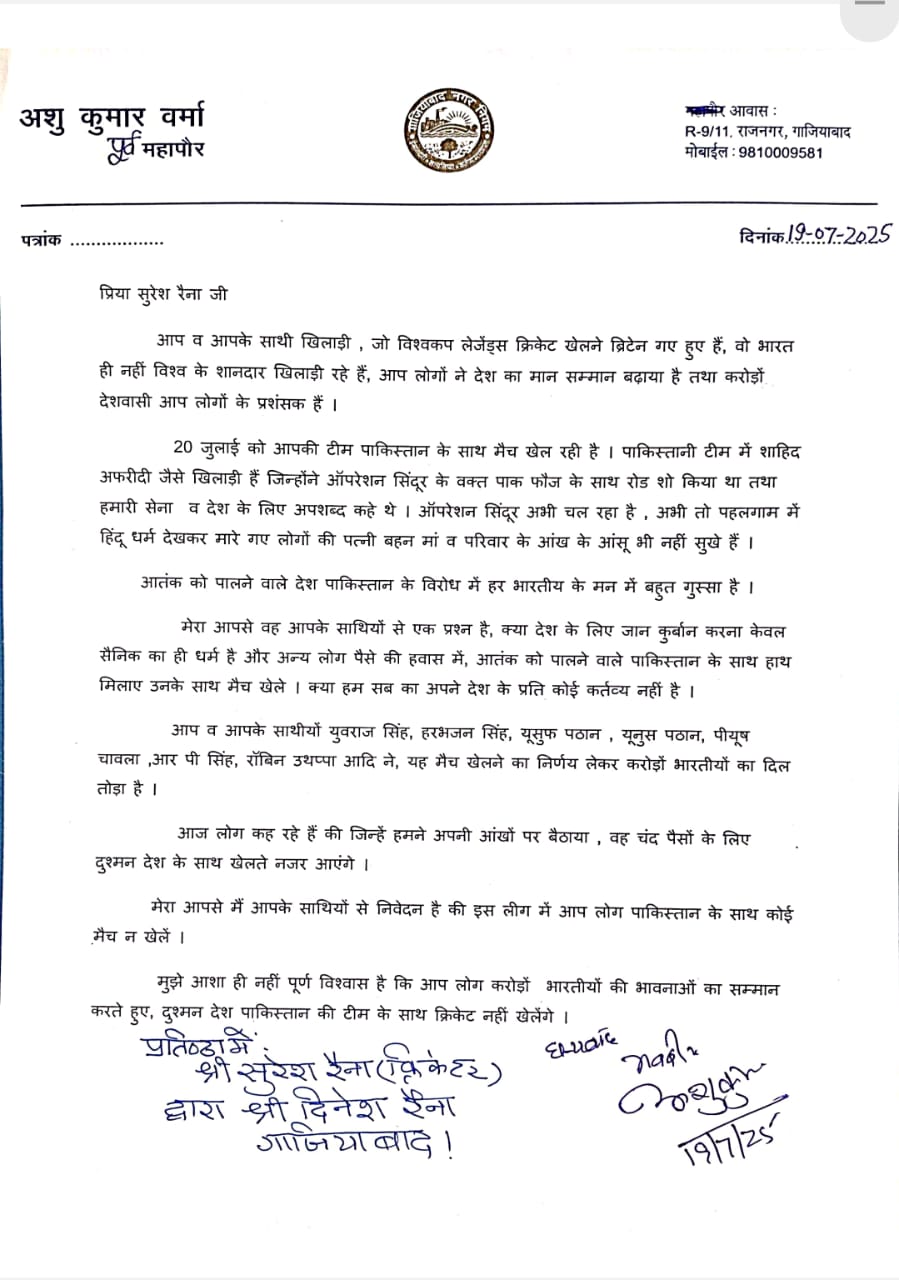 अशु कुमार वर्मा
पूर्व महापौर
गाजियाबाद नगर निगम
महापौर आवास :
R-9/11, राजनगर, गाजियाबाद
मोबाईल : 9810009581
पत्रांक ..................
दिनांक 19-07-2025
प्रिया सुरेश रैना जी
आप व आपके साथी खिलाड़ी , जो विश्वकप लेजेंड्स क्रिकेट खेलने ब्रिटेन गए हुए हैं, वो भारत
ही नहीं विश्व के शानदार खिलाड़ी रहे हैं, आप लोगों ने देश का मान सम्मान बढ़ाया है तथा करोड़ों
देशवासी आप लोगों के प्रशंसक हैं ।
20 जुलाई को आपकी टीम पाकिस्तान के साथ मैच खेल रही है । पाकिस्तानी टीम में शाहिद
अफरीदी जैसे खिलाड़ी हैं जिन्होंने ऑपरेशन सिंदूर के वक्त पाक फौज के साथ रोड शो किया था तथा
हमारी सेना व देश के लिए अपशब्द कहे थे । ऑपरेशन सिंदूर अभी चल रहा है , अभी तो पहलगाम में
हिंदू धर्म देखकर मारे गए लोगों की पत्नी बहन मां व परिवार के आंख के आंसू भी नहीं सुखे हैं ।
आतंक को पालने वाले देश पाकिस्तान के विरोध में हर भारतीय के मन में बहुत गुस्सा है ।
मेरा आपसे वह आपके साथियों से एक प्रश्न है, क्या देश के लिए जान कुर्बान करना केवल
सैनिक का ही धर्म है और अन्य लोग पैसे की हवास में, आतंक को पालने वाले पाकिस्तान के साथ हाथ
मिलाए उनके साथ मैच खेले । क्या हम सब का अपने देश के प्रति कोई कर्तव्य नहीं है ।
आप व आपके साथीयों युवराज सिंह, हरभजन सिंह, यूसुफ पठान , यूनुस पठान, पीयूष
चावला ,आर पी सिंह, रॉबिन उथप्पा आदि ने, यह मैच खेलने का निर्णय लेकर करोड़ों भारतीयों का दिल
तोड़ा है ।
आज लोग कह रहे हैं की जिन्हें हमने अपनी आंखों पर बैठाया , वह चंद पैसों के लिए
दुश्मन देश के साथ खेलते नजर आएंगे ।
मेरा आपसे मैं आपके साथियों से निवेदन है की इस लीग में आप लोग पाकिस्तान के साथ कोई
मैच न खेलें ।
मुझे आशा ही नहीं पूर्ण विश्वास है कि आप लोग करोड़ों भारतीयों की भावनाओं का सम्मान
करते हुए, दुश्मन देश पाकिस्तान की टीम के साथ क्रिकेट नहीं खेलेंगे ।
प्रतिष्ठा में :
श्री सुरेश रैना (क्रिकेटर)
द्वारा श्री दिनेश रैना
गाजियाबाद !
धन्यवाद
19/7/25